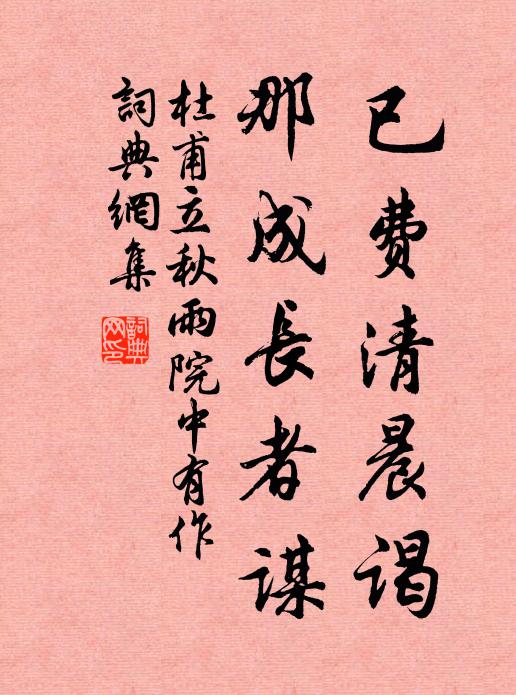 已费清晨谒
那成長者谋
杜甫立秋雨院中有作
詞典網集
詞典
网印